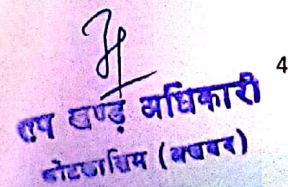 4
उप खण्ड अधिकारी
कोटकासिम (अलवर)